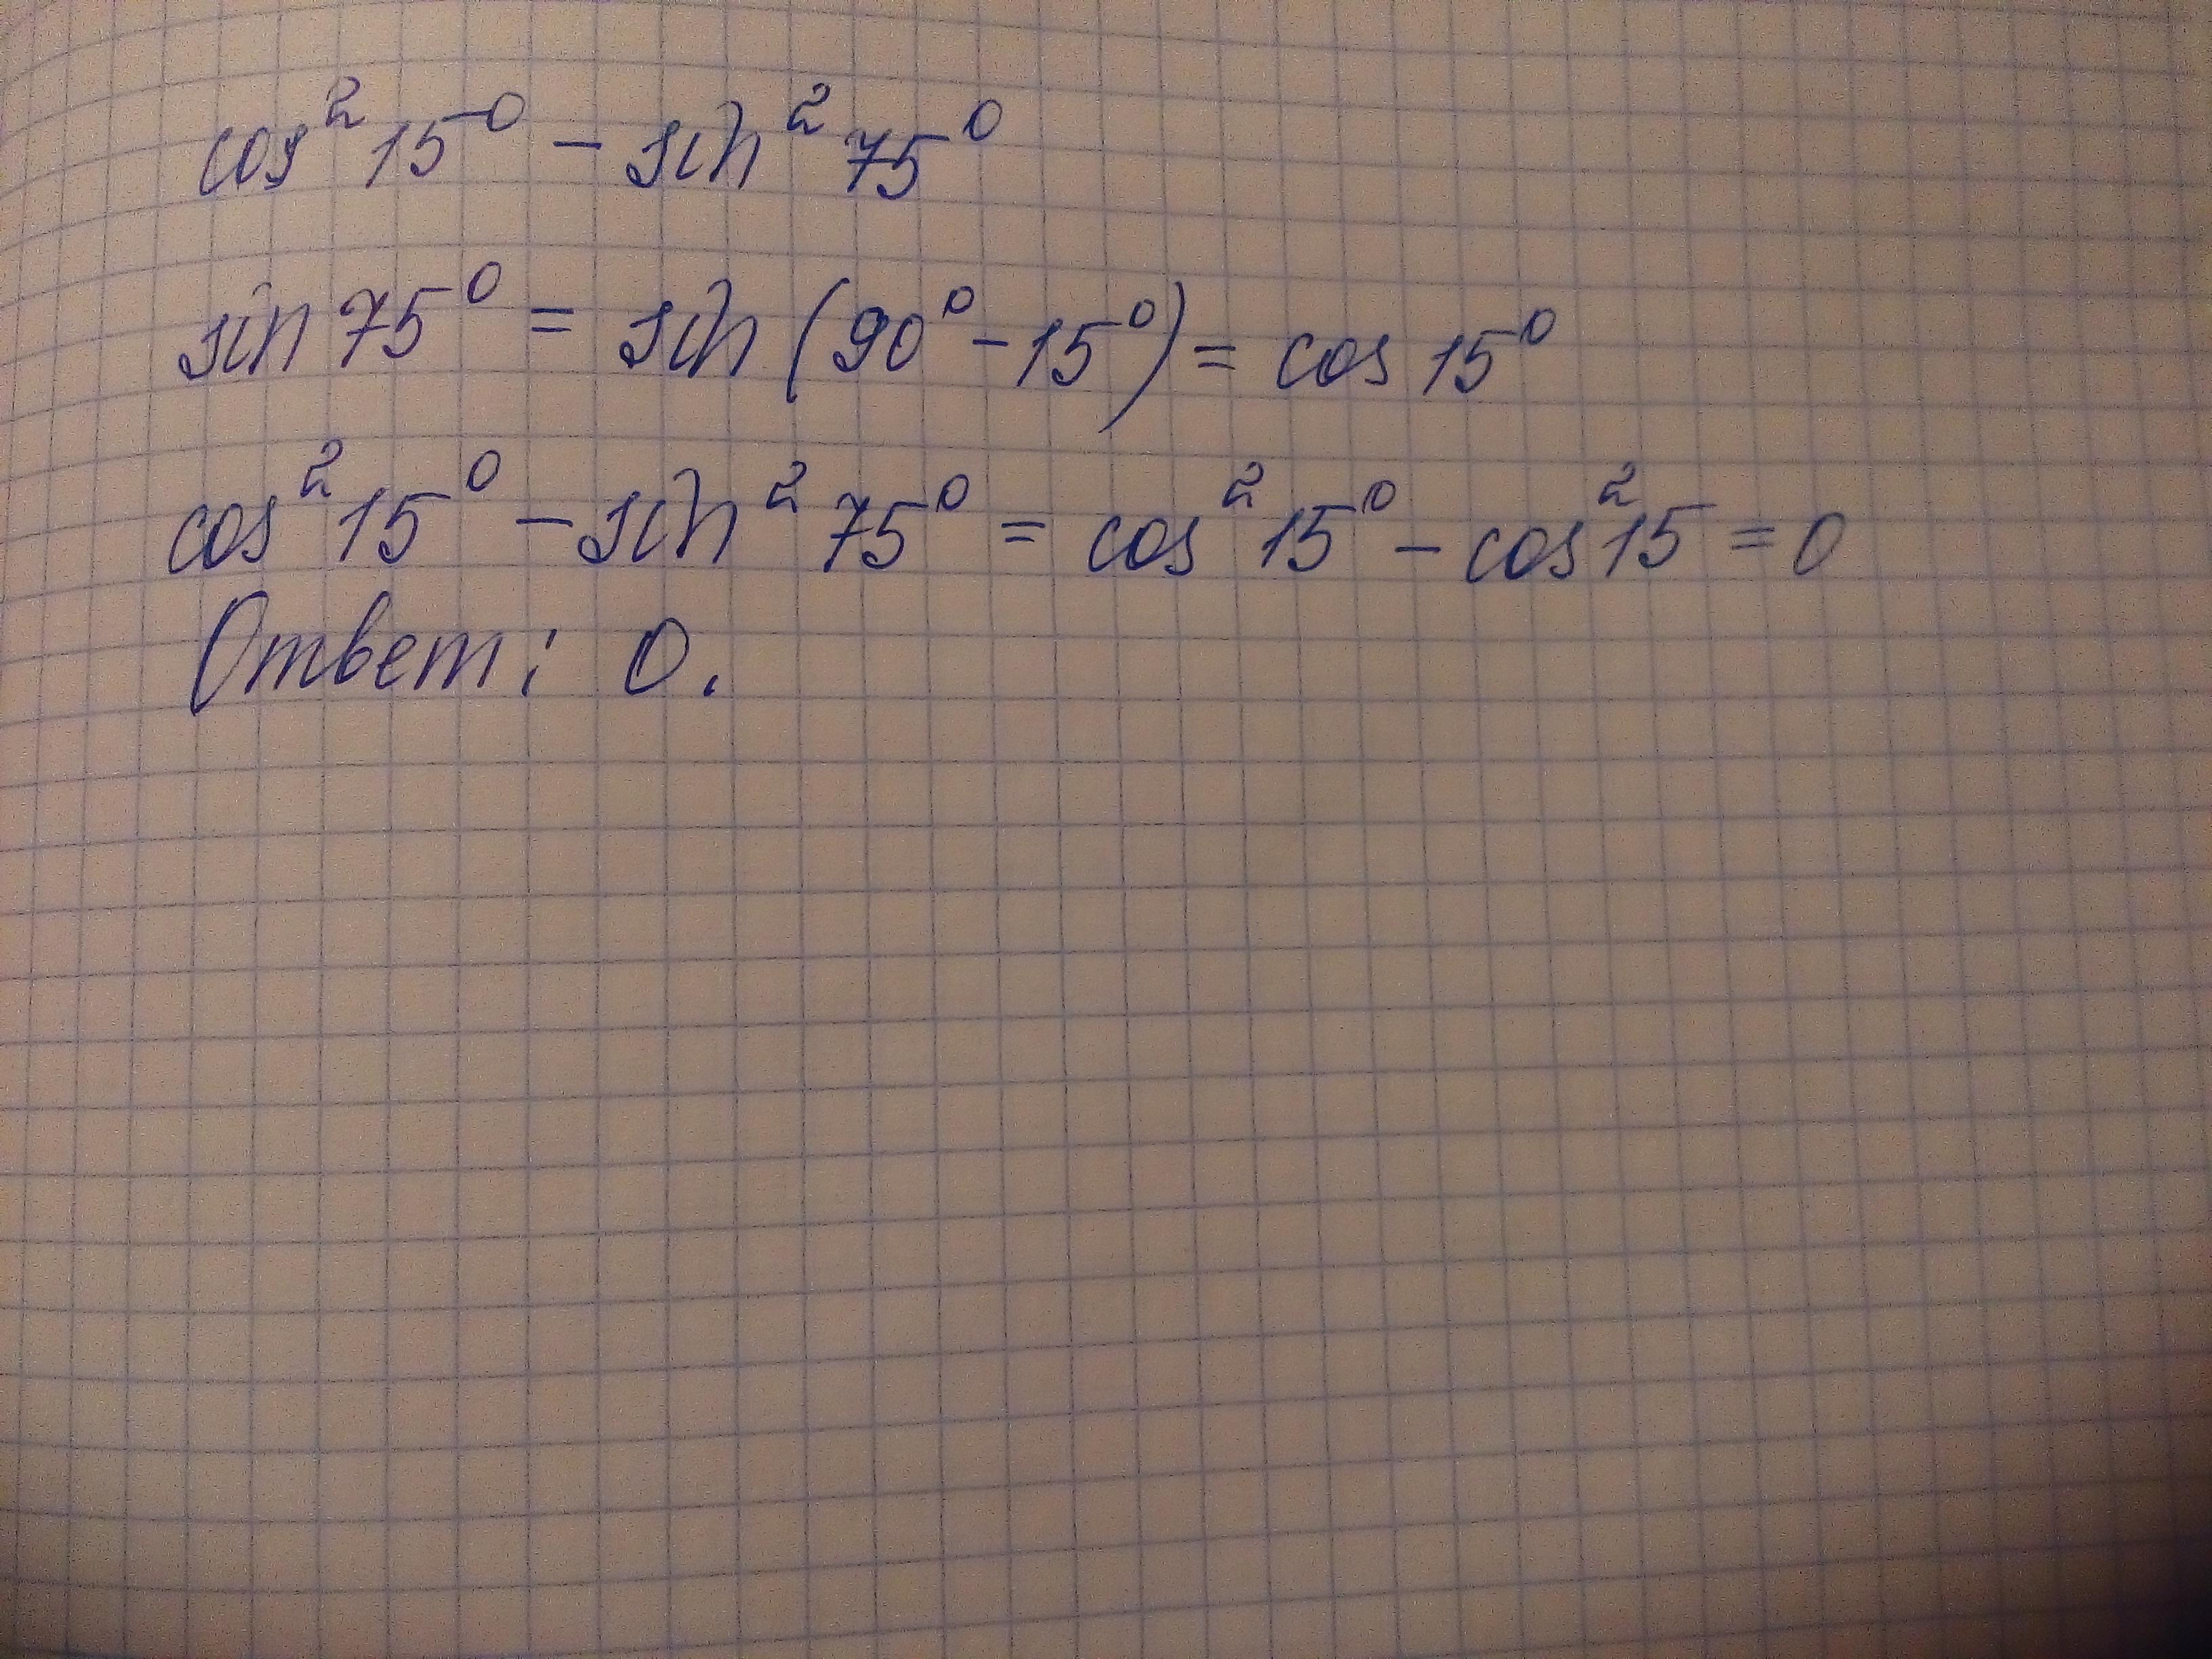 cos²15⁰ – sin²75⁰
sin 75⁰ = sin (90⁰ – 15⁰) = cos 15⁰
cos²15⁰ – sin²75⁰ = cos²15⁰ – cos²15 = 0
Ответ: 0.